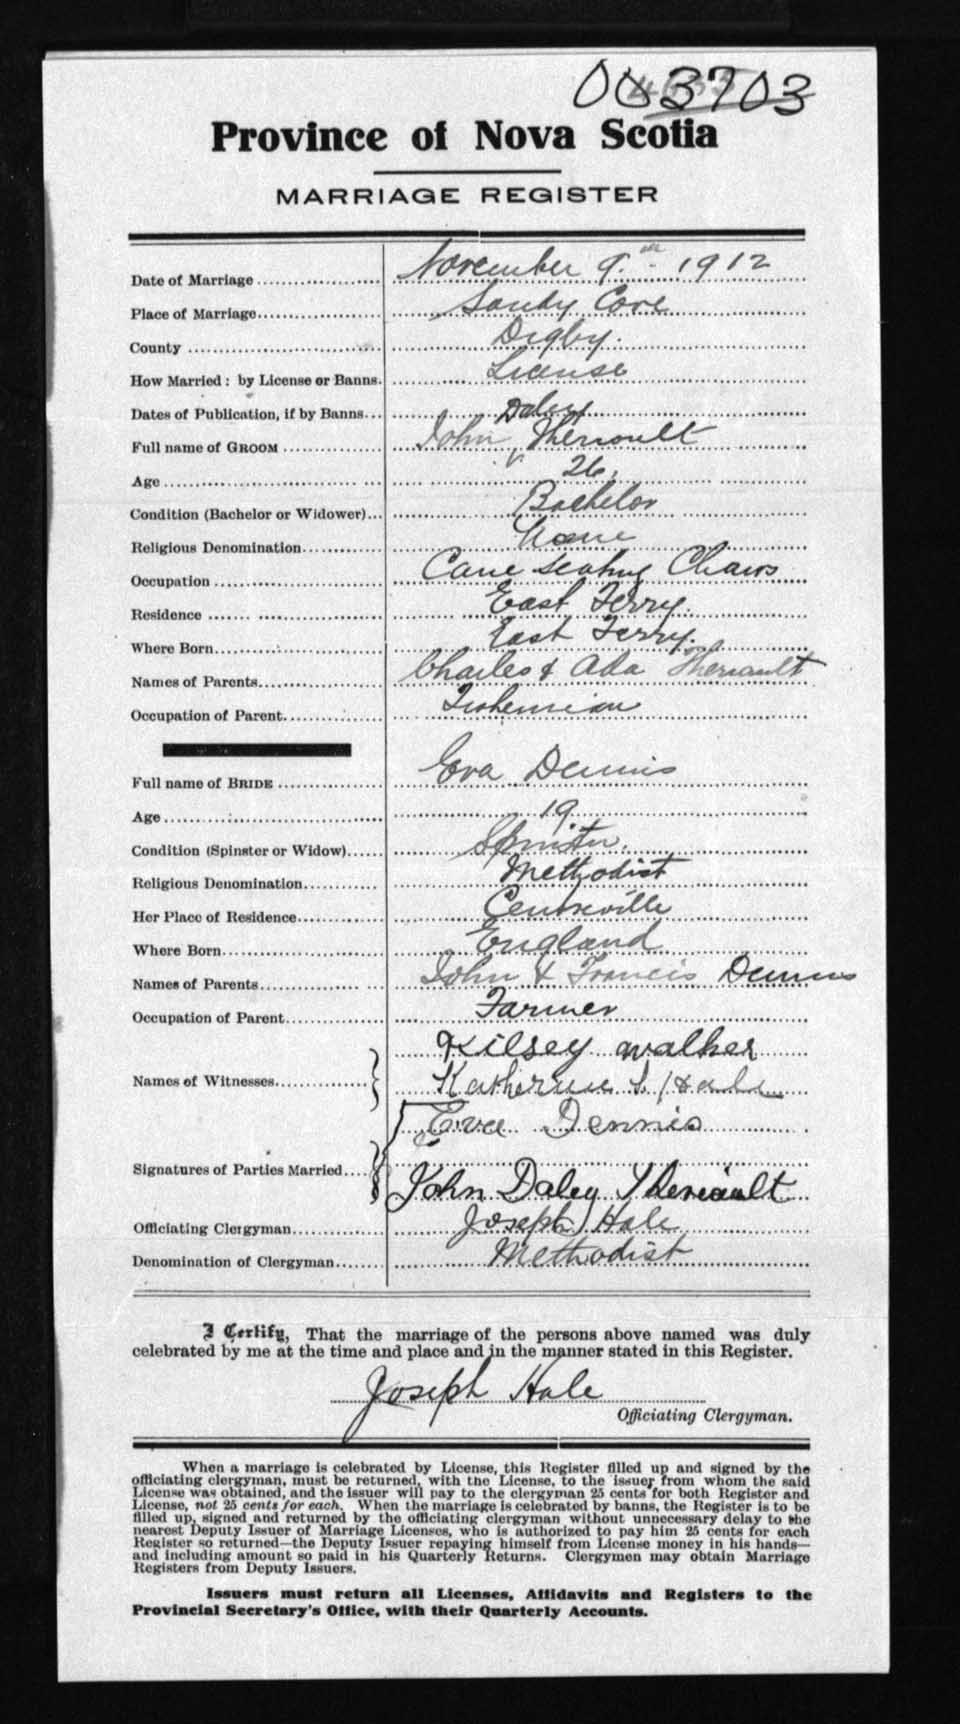 003703
Province of Nova Scotia
MARRIAGE REGISTER
Date of Marriage November 9th 1912
Place of Marriage Sandy Cove
County Digby.
How Married: by License or Banns. License
Dates of Publication, if by Banns
Full name of GROOM John Daley Theriault
Age 26.
Condition (Bachelor or Widower) Bachelor
Religious Denomination None
Occupation Cane seating Chairs
Residence East Ferry.
Where Born East Ferry.
Names of Parents Charles & Ada Theriault
Occupation of Parent Fisherman
Full name of BRIDE Eva Dennis
Age 19
Condition (Spinster or Widow) Spinster.
Religious Denomination Methodist
Her Place of Residence Centreville
Where Born England
Names of Parents John & Francis Dennis
Occupation of Parent Farmer
Kilsey walker
Names of Witnesses Katherine S. Hale
Eva Dennis
Signatures of Parties Married
John Daley Theriault
Officiating Clergyman Joseph Hale
Denomination of Clergyman Methodist
I Certify, That the marriage of the persons above named was duly
celebrated by me at the time and place and in the manner stated in this Register.
Joseph Hale
Officiating Clergyman.
When a marriage is celebrated by License, this Register filled up and signed by the
officiating clergyman, must be returned, with the License, to the issuer from whom the said
License was obtained, and the issuer will pay to the clergyman 25 cents for both Register and
License, not 25 cents for each. When the marriage is celebrated by banns, the Register is to be
filled up, signed and returned by the officiating clergyman without unnecessary delay to the
nearest Deputy Issuer of Marriage Licenses, who is authorized to pay him 25 cents for each
Register so returned—the Deputy Issuer repaying himself from License money in his hands—
and including amount so paid in his Quarterly Returns. Clergymen may obtain Marriage
Registers from Deputy Issuers.
Issuers must return all Licenses, Affidavits and Registers to the
Provincial Secretary's Office, with their Quarterly Accounts.